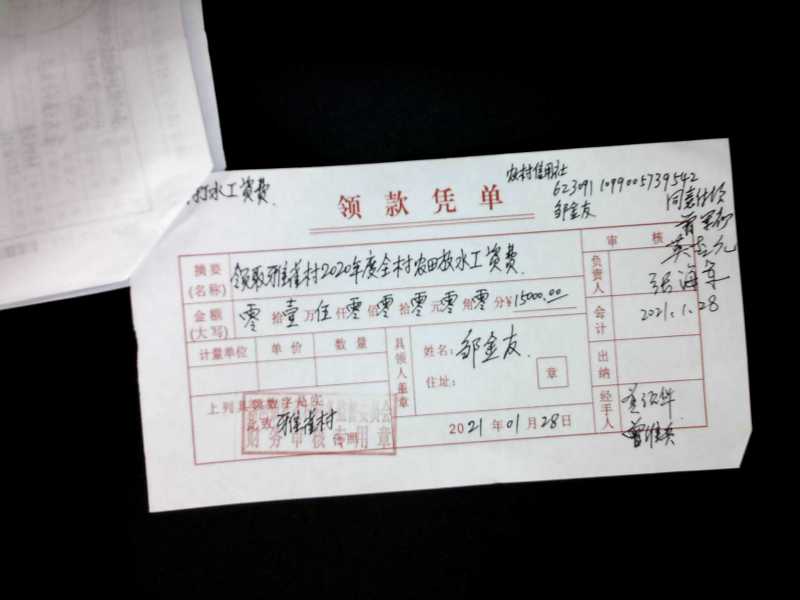 放水工资费
农村信用社
领款凭单
623091 1099005739542
邹金友
同意付款
审核
摘要(名称) 领取雅雀村2020年度全村农田放水工资费
负责人 张海军
金额(大写) 零拾壹万伍仟零佰零拾零元零角零分¥15000.00
会计 2021.1.28
计量单位 单价 数量
具领人盖章
姓名: 邹金友
住址:
章
出纳
上列具领数字处实
此致 雅雀村 台照
财务审核专用章
2021年01月28日
经手人